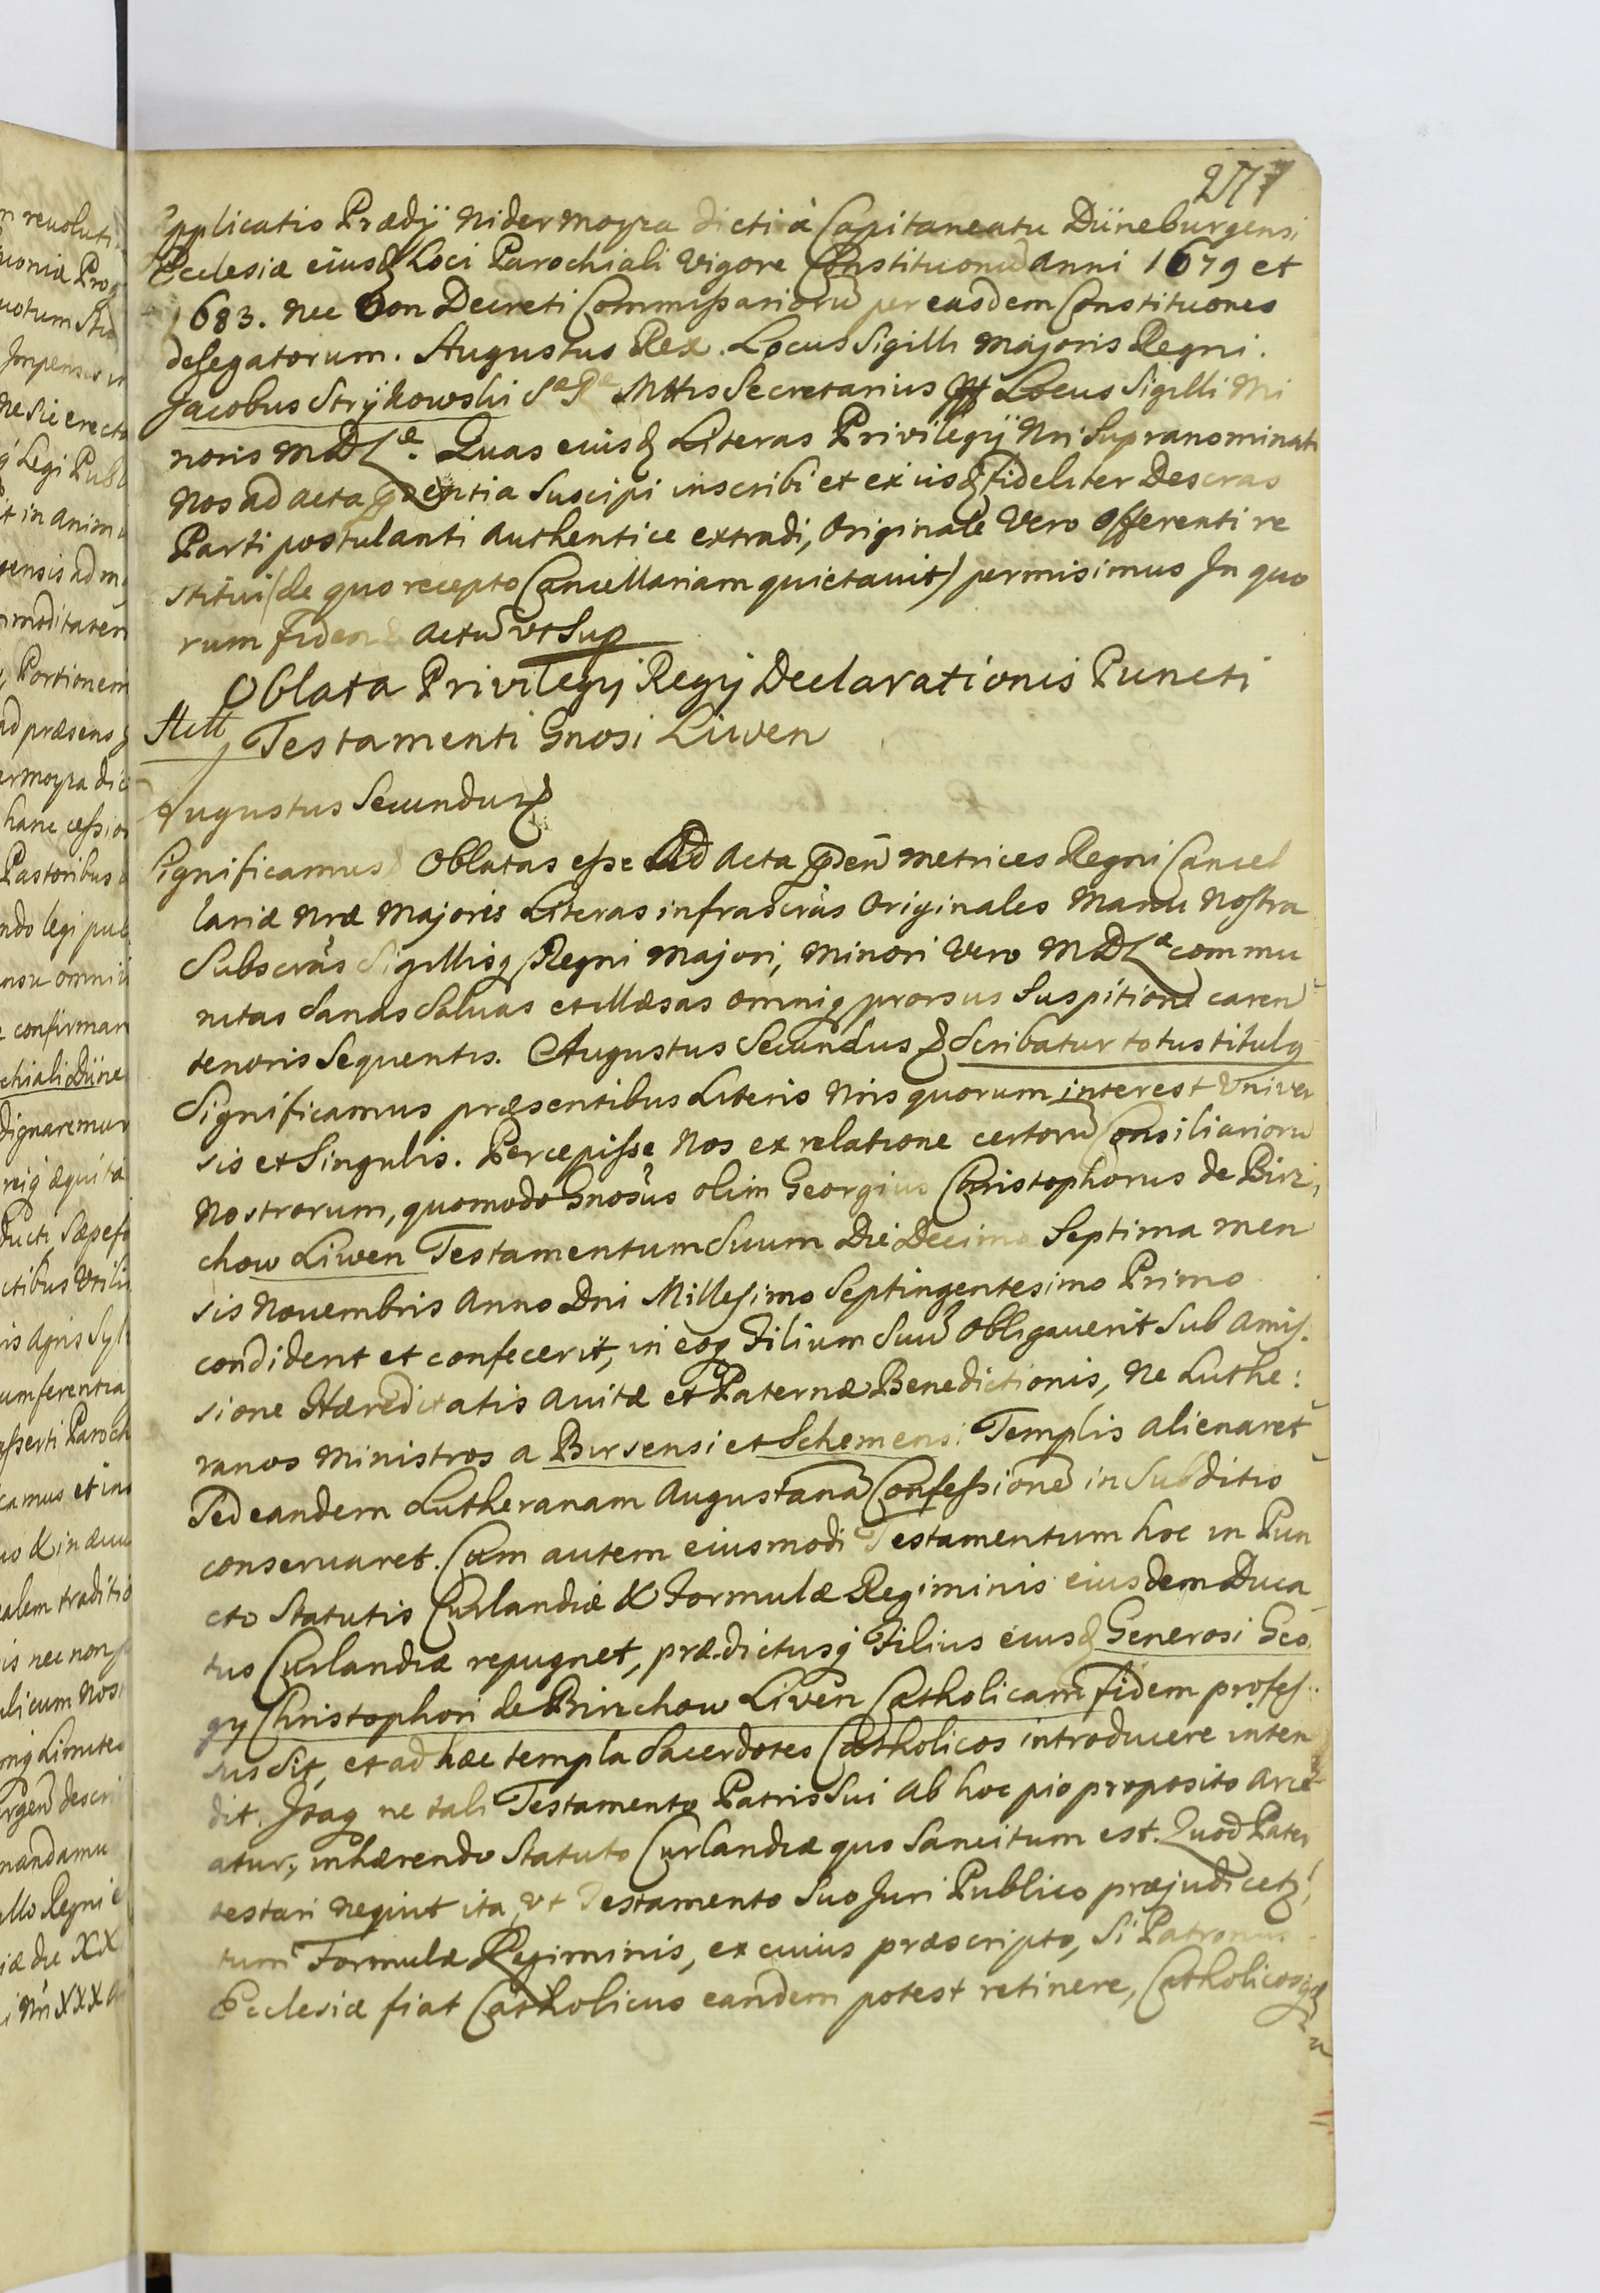 277
Applicatio Prædÿ Nidermoyza dicti à Capitaneatu Düneburgensi
Ecclesiæ eiusq Loci Parochiali Vigore Constitutionū Anni 1679 et
1683. Nec Non Decreti Commissariorū per easdem Constituones
delegatorum. Augustus Rex. Locus Sigilli Majoris Regni.
Jacobus Strÿkowski Sæ Ræ Mttis Secretarius Locus Sigilli Mi
noris MDLæ. Quas eiusq Literas Privilegÿ Nri Supranominati
Nos ad acta pntia Suscipi inscribi et ex iisq fideliter Descras
Parti postulanti Authentice extradi, Originale Vero Offerenti re
stitui (de quo recepto Cancellariam quietauit) permisimus In quo
rum fidem Actū vt Sup
Oblata Privilegÿ Regÿ Declarationis Puncti
Testamenti Gnosi Liwen
Augustus Secundus
Significamus Oblatas esse Ad Acta pden Metrices Regni Cancel
lariæ Nræ Majoris Literas infrascras Originales Manu Nostra
Subscras Sigillisq Regni Majori, Minori Vero MDLæ commu
nitas Sanas Saluas et illæsas omniq prorsus Suspitione caren
tenoris Sequentis. Augustus Secundus & Scribatur totus titulq
Significamus præsentibus Literis Nris quorum interest Vniver
sis et Singulis. Percepisse Nos ex relatione certorū Consiliariorū
Nostrorum, quomodo Gnosus olim Georgius Christophorus de Birz,
chow Liwen Testamentum Suum Die Decima Septima Men
sis Nouembris Anno Dni Millesimo Septingentesimo Primo
condiderit et confecerit, in eoq Filium Suū Obligauerit Sub Amis.
sione Hæreditatis Auitæ et Paternæ Benedictionis, Ne Luthe:
ranos Ministros a Birsensi et Schemensi Templis Alienaret
Sed eandem Lutheranam Augustanā Confessionē in Subditis
conseruaret. Cum autem eiusmodi Testamentum hoc in Pun
cto Statutis Curlandiæ & Formulæ Regiminis eiusdem Duca
tus Curlandiæ repugnet, prædictusq Filius eiusq Generosi Geo
gÿ Christophori de Birzchow Liven Catholicam fidem profes.
sus Sit, et ad hæc templa Sacerdotes Catholicos introducere inten
dit. Itaq ne tali Testamento Patris Sui Ab hoc pio proposito Arce
atur, inhærendo Statuto Curlandiæ quo Sancitum est. Quod Pater
testari Nequit ita, vt Testamento Suo Juri Publico præjudicet,
tum Formulæ Regiminis, ex cuius præscripto, Si Patronus
Ecclesiæ fiat Catholicus eandem potest retinere, Catholicosq